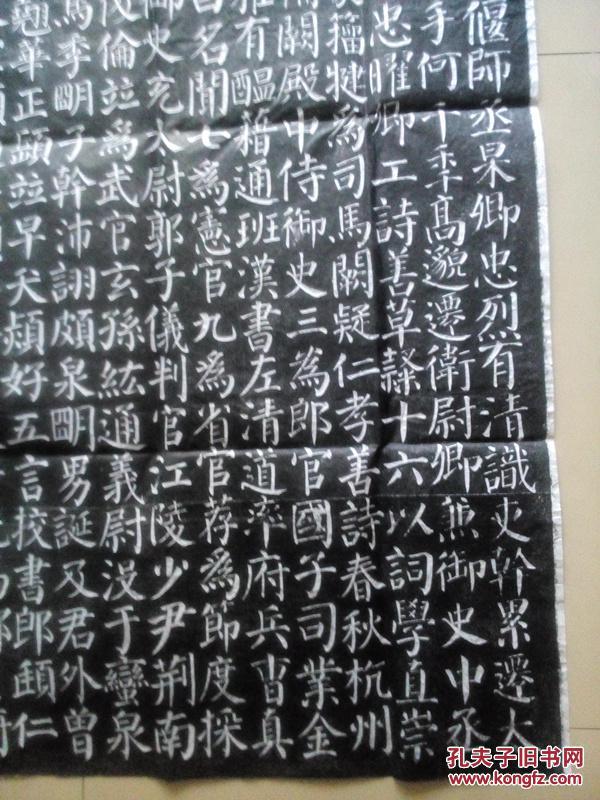 偃師丞杲卿忠烈有清識吏幹累遷太
手何千秊高邈遷衛尉卿兼御史中丞
忠曜卿工詩善草隸十六以詞學直崇
籀犍為司馬闕疑仁孝善詩春秋杭州
闕殿中侍御史三為郎官國子司業金
雅有醖藉通班漢書左清道率府兵曹真
百名聞七為憲官九為省官荐為節度採
御史充太尉郭子儀判官江陵少尹荊南
茂倫並為武官玄孫紘通義尉沒于蠻泉
馬季明子幹沛詡頗泉明男誕及君外曾
翹華正顗並早夭熲好五言校書郎頲仁
孔夫子旧书网
www.kongfz.com